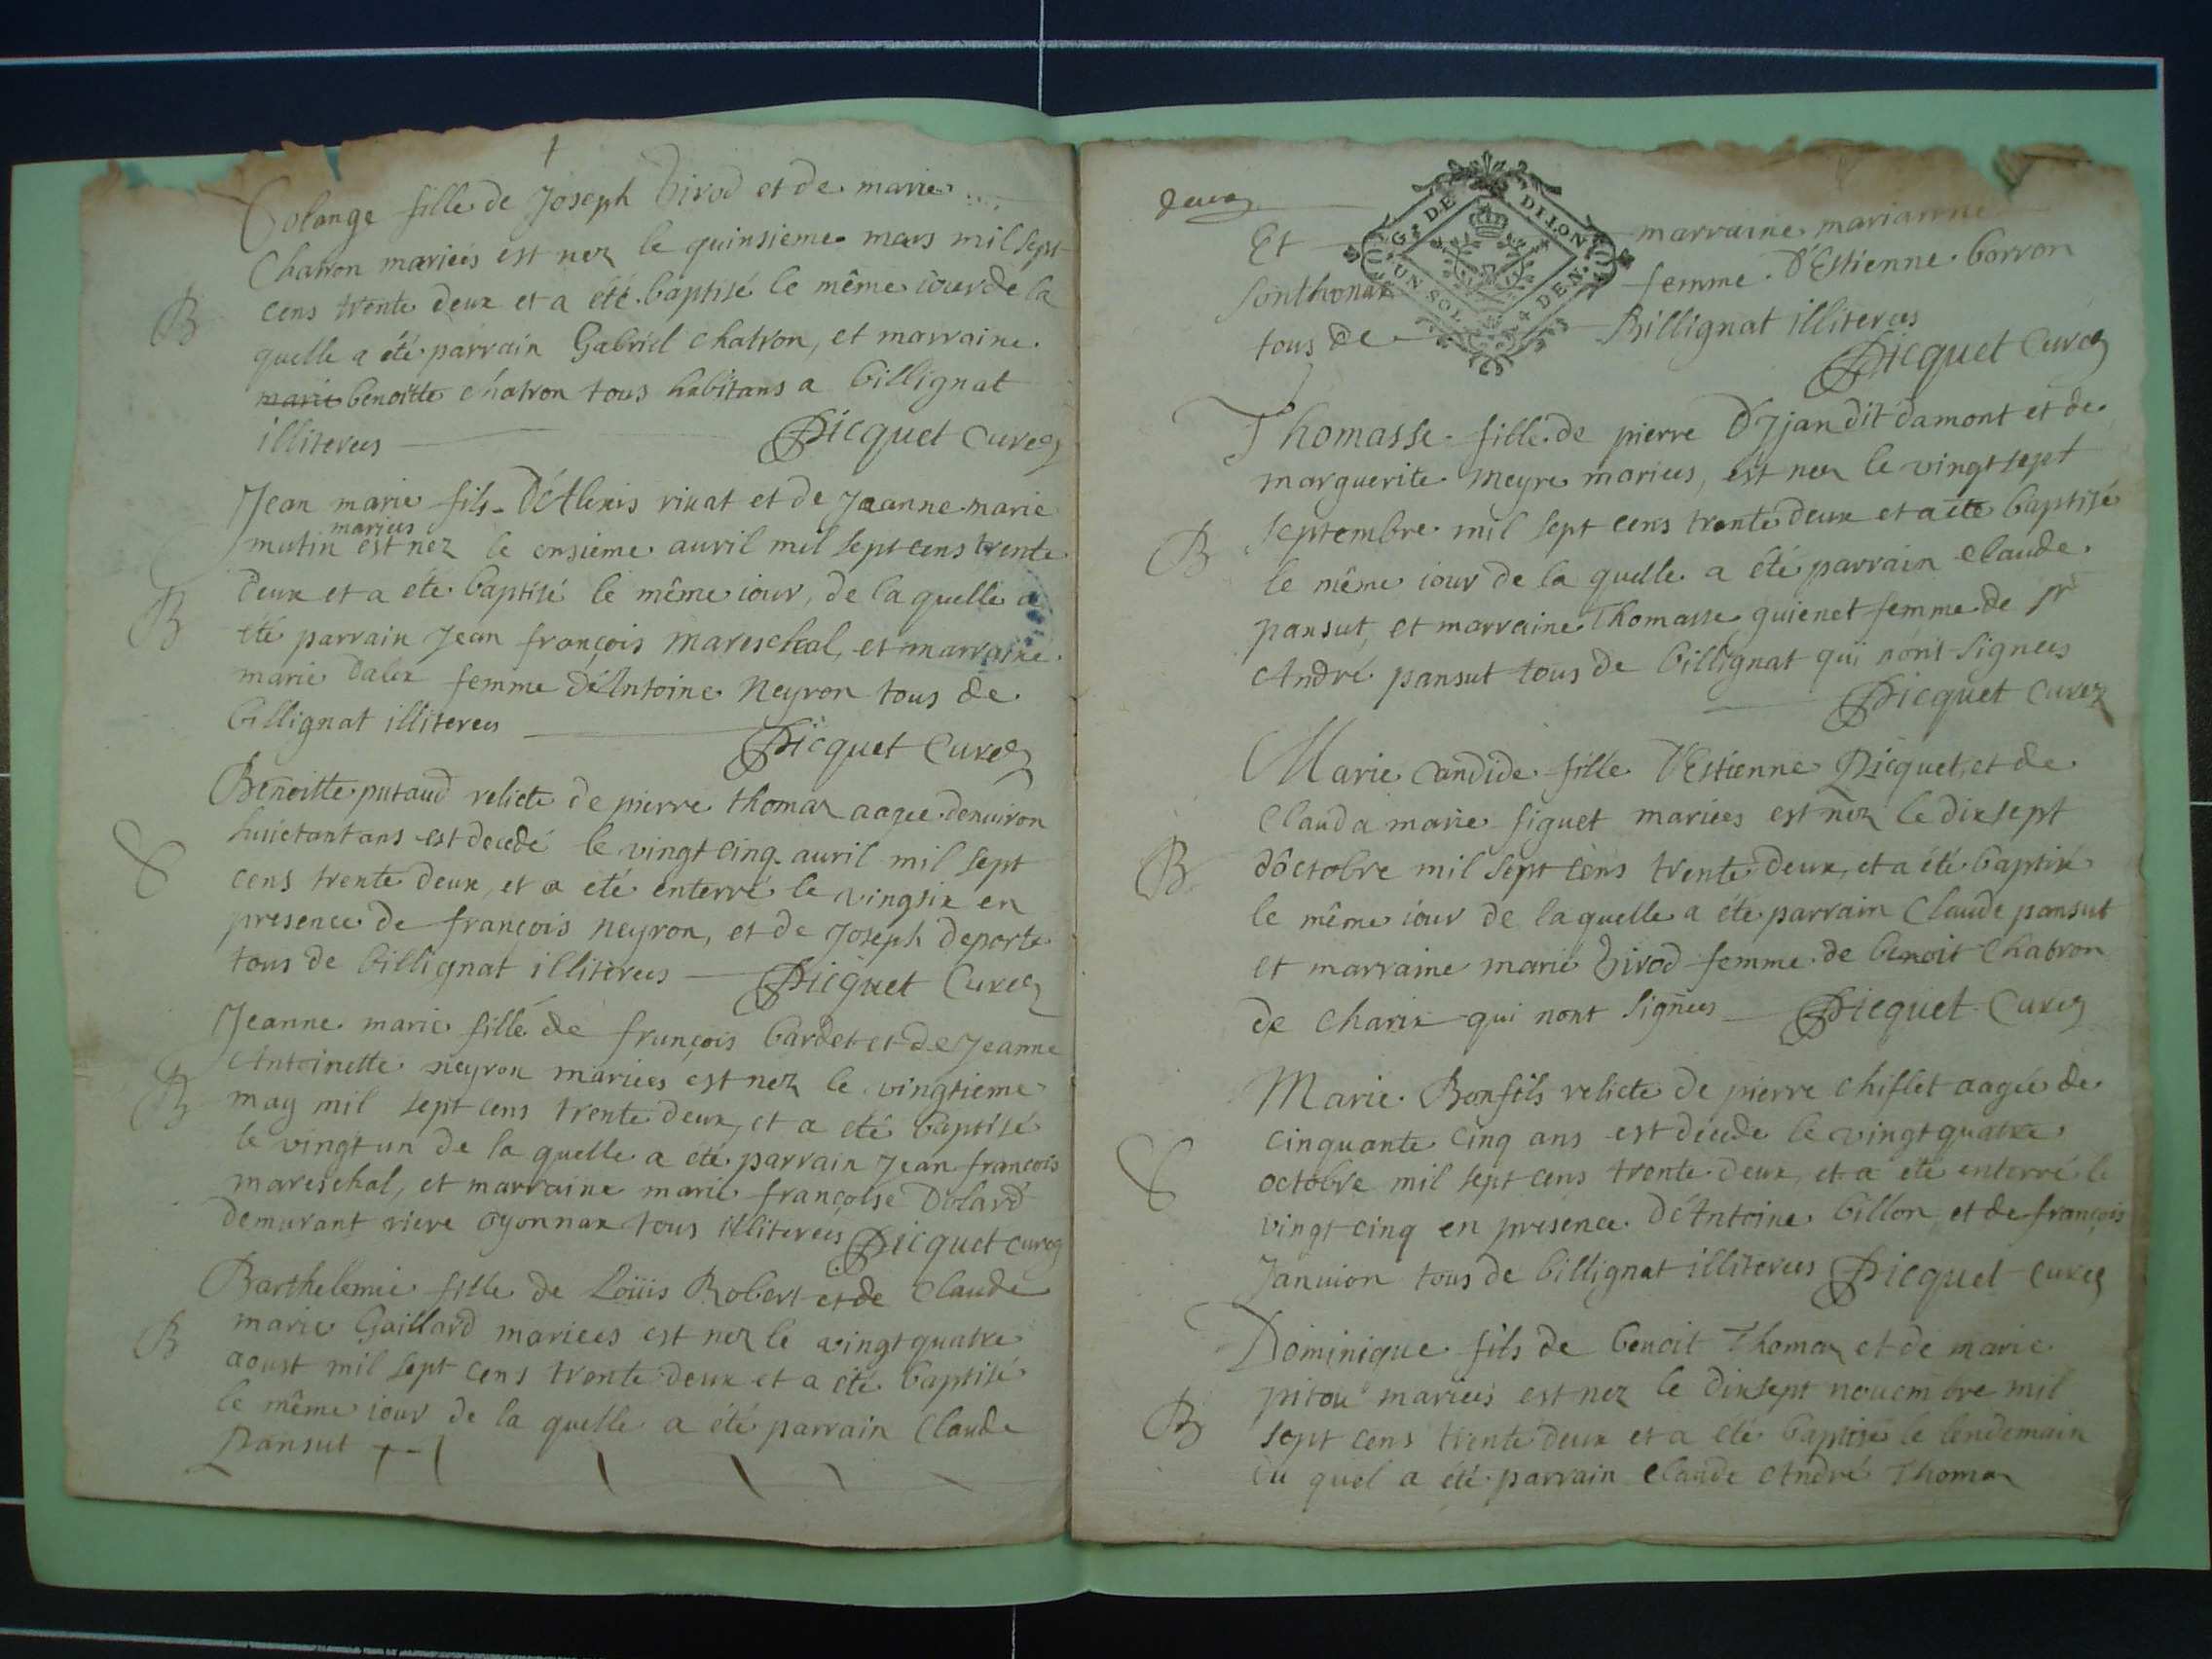 Colange fille de Joseph Tirod et de marie
Chatron mariées est nez le quinsieme mars mil sept
B
cens trente deux et a été baptisé le même iour de la
quelle a été parrain Gabriel Chatron, et marraine
marie benoitte chatron tous habitans a billignat
illiterees Picquet Curez
Jean marie fils D'Alexis rivat et de Jeanne marie
mariees
mutin est nez le onsieme auvril mil sept cens trente
B
deux et a été baptisé le même iour, de la quelle a
été parrain Jean françois Mareschal, et marraine
marie Dalex femme d'Antoine Neyron tous de
billignat illiterees
Picquet Curez
Benoitte putaud relicte de pierre thomaz aagee denuiron
huictant ans est decedé le vingt cinq auril mil sept
S
cens trente deux, et a été enterré le vingsix en
presence de françois neyron, et de Joseph deporte
tous de billignat illiterees Picquet Curez
Jeanne marie fille de françois bardet et de Jeanne
Antoinette neyron mariees est nez le vingtieme
B
may mil sept cens trente deux, et a été baptisé
le vingt un de la quelle a été parrain Jean françois
mareschal, et marraine marie françoise Dolard
demurant riere oyonnax tous illiterees Picquet curez
Barthelemie fille de Loüis Robert et de Claude
B
marie Gaillard mariees est nez le vingt quatre
aoust mil sept cens trente deux et a été baptisé
le même iour de la quelle a été parrain Claude
Pansut
deux
G. DE DIJON
UN SOL 4 DEN.
Et marraine marianne
Sonthonax femme d'Estienne borron
tous de Billignat illiterees
Picquet Curez
Thomasse fille de pierre D'Yjan dit damont et de
marguerite Meyre mariees, est nez le vingt sept
B
septembre mil sept cens trente deux et a été baptisé
le même iour de la quelle a été parrain Claude
pansut, et marraine Thomasse guienet femme de pr
André pansut tous de billignat qui nont signees
Picquet Curez
Marie Candide fille D'Estienne Picquet, et de
Clauda marie siguet mariees est nez le dix sept
B
d'octobre mil sept cens trente deux, et a été baptisé
le même iour de la quelle a été parrain Claude pansut
et marraine marie Tirod femme de benoit Chatron
de Charix qui nont signees Picquet Curez
Marie Bonfils relicte de pierre chiflet aagée de
cinquante cinq ans est decede le vingt quatre
S
octobre mil sept cens trente deux, et a été enterré le
vingt cinq en presence d'Antoine billon, et de françois
Januion tous de billignat illiterees Picquet Curez
Dominique fils de benoit Thomaz et de marie
pitou mariees est nez le dix sept nouembre mil
B
sept cens trente deux et a été baptisé le lendemain
du quel a été parrain Claude André Thomaz